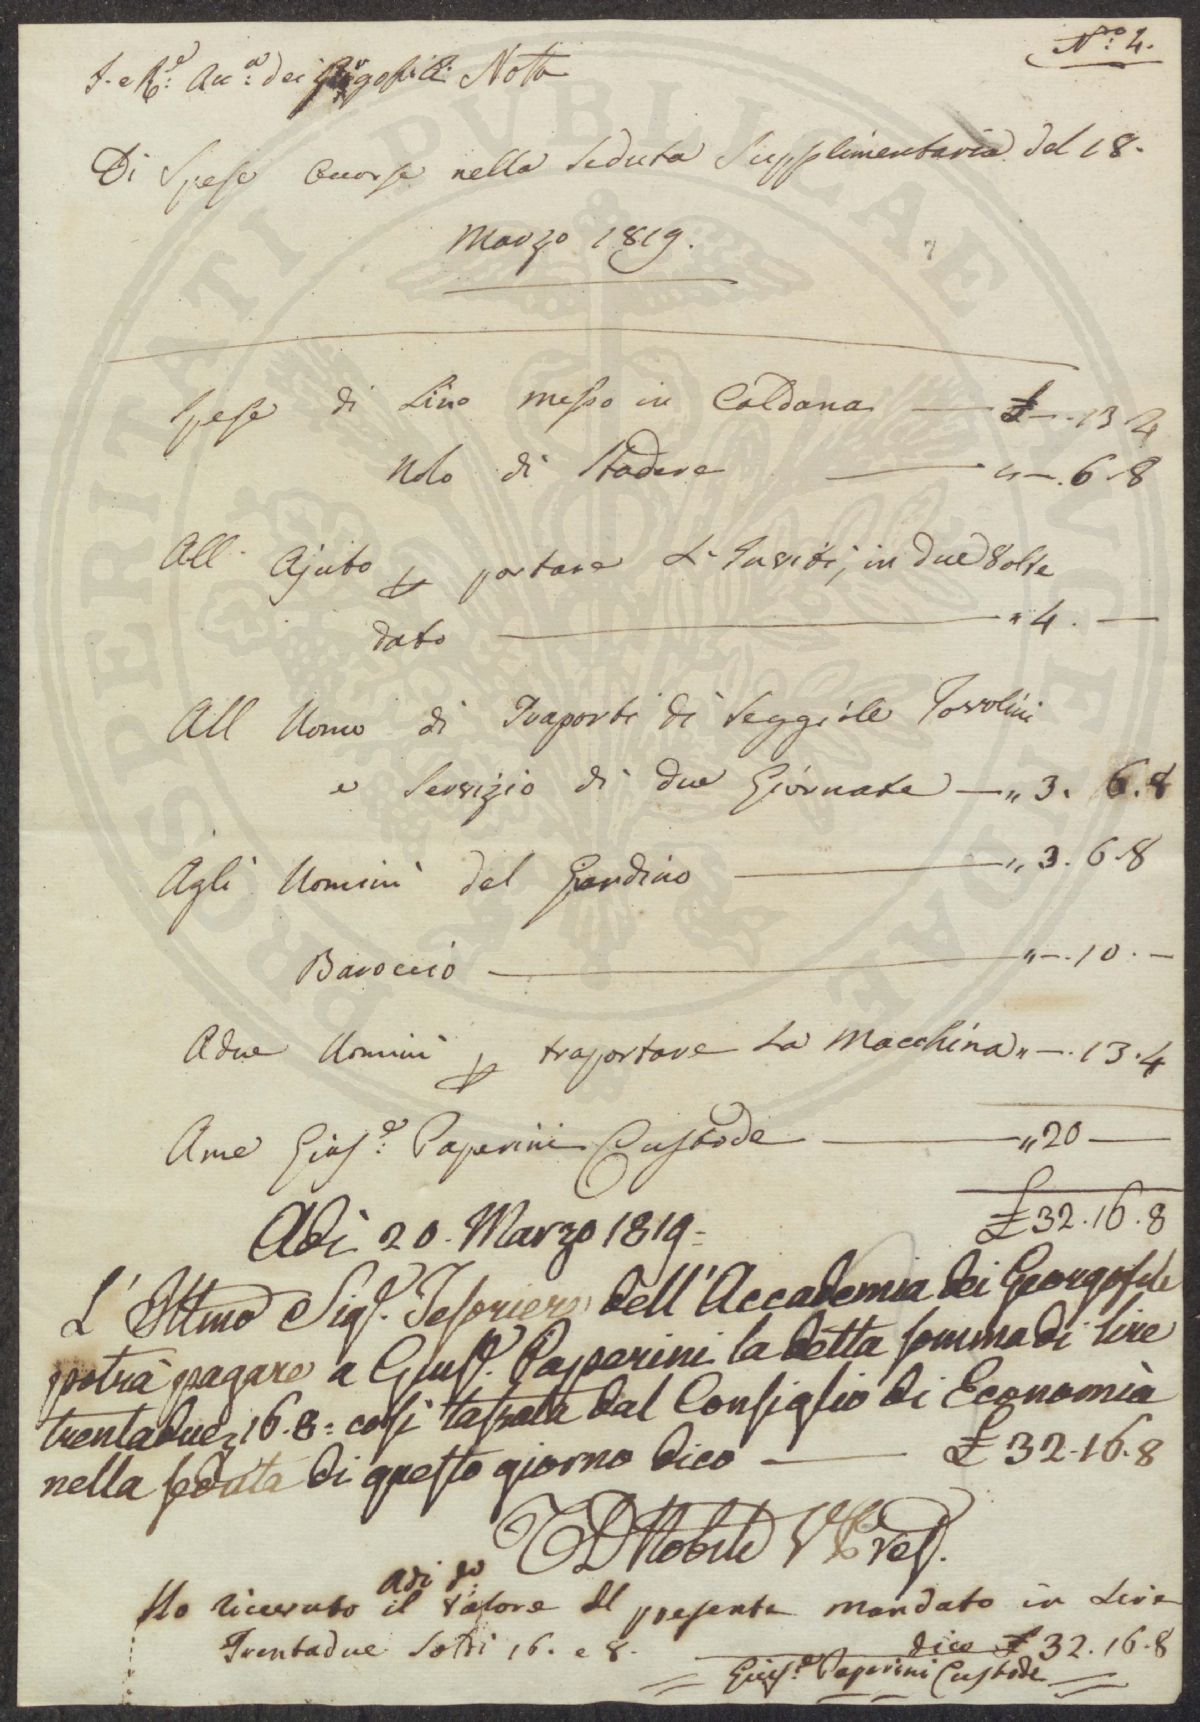 N.º 4.
I. e R.e Acc.a dei Georgofili: Nota
Di Spese Occorse nella Seduta Supplimentaria del 18.
Marzo 1819.
Spese di Lino messo in Caldana — £ —. 13. 4
Nolo di Stadere — " —. 6. 8
All' Ajuto p portare L'Inviti, in due Volte
dato — " 4. —
All Uomo di Traporti di Seggiole Tavolini
e Servizio di due Giornate — " 3. 6. 8
Agli Uomini del Giardino — " 3. 6. 8
Baroccio — " —. 10. —
A due Uomini p traportare La Macchina " —. 13. 4
A me Gius.e Paperini Custode — " 20 —
£ 32. 16. 8
Adì 20. Marzo 1819 =
L'Ill.mo Sig.r Tesoriere dell'Accademia dei Georgofili
potrà pagare a Gius.e Papperini la detta somma di lire
trentadue, 16. 8 = così tassata dal Consiglio di Economia
nella seduta di questo giorno dico — £ 32. 16. 8
V. Pres.
Adi do
Ho ricevuto il valore del presente mandato in Lire
Trentadue Soldi 16. e 8. dico £ 32. 16. 8
Gius.e Paperini Custode
PROSPERITATI PVBLICAE AVGENDAE